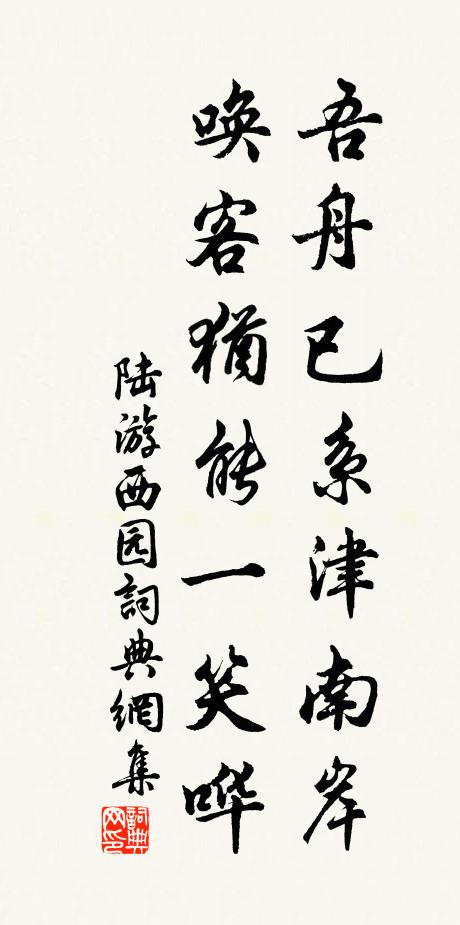 吾舟已系津南岸
唤客犹能一笑哗
陆游西园詞典網集
詞典网印